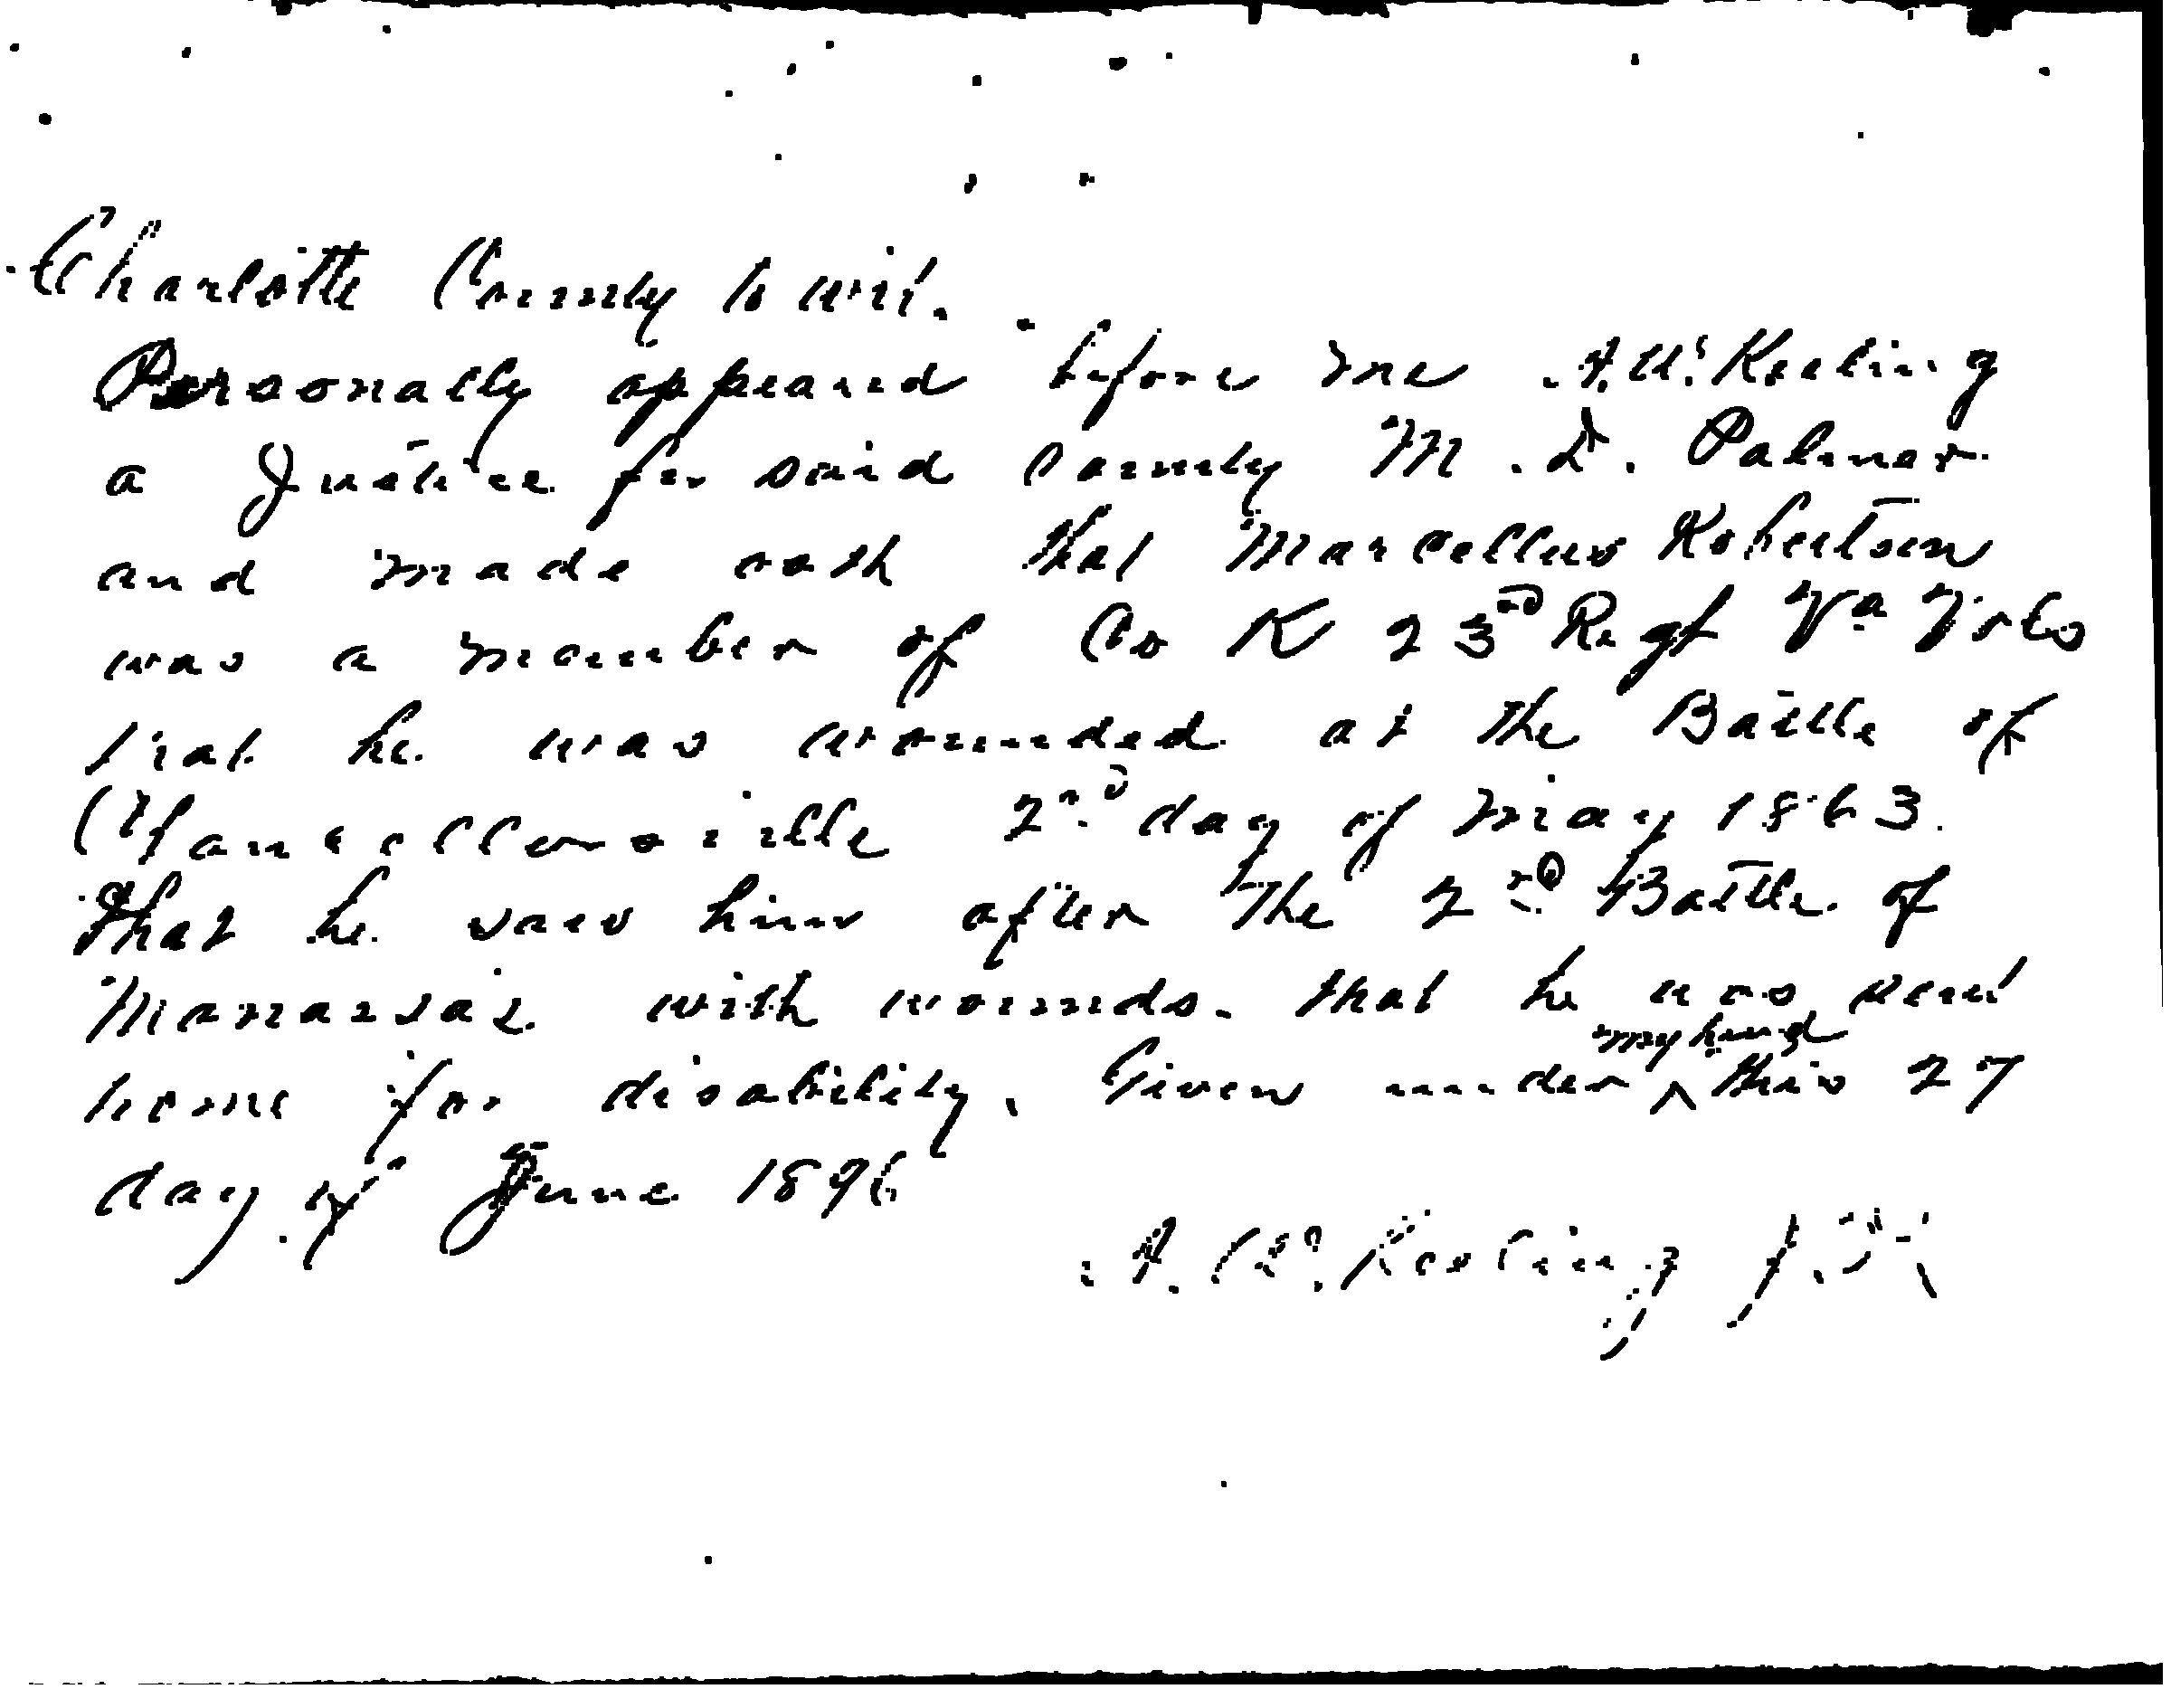 Charlotte County to wit.
Personally appeared before me A. W. Keeling
a Justice for said County M. D. Palmer
and made oath that Marcellus Robertson
was a member of Co K 23rd Regt Va Vols
that he was wounded at the Battle of
Chancellorsville 2nd day of May 1863.
That he saw him after the 2nd Battle of
Manassas with wounds. that he was sent
home for disability. Given under ^ my hand this 27
day of June 1896
A. W. Keeling J.P.